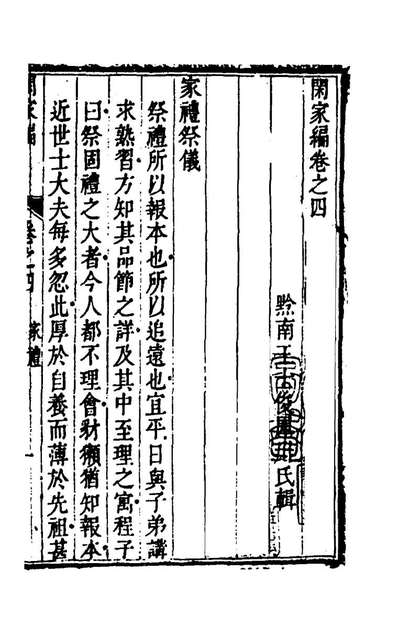 閑家編卷之四
黔南王士俊
氏輯
家禮祭儀
祭禮所以報本也所以追遠也宜平日與子弟講
求熟習方知其品節之詳及其中至理之寓程子
曰祭固禮之大者今人都不理會豺獺猶知報本
近世士大夫每多忽此厚於自養而薄於先祖甚
閑家編
卷之四
家禮
一